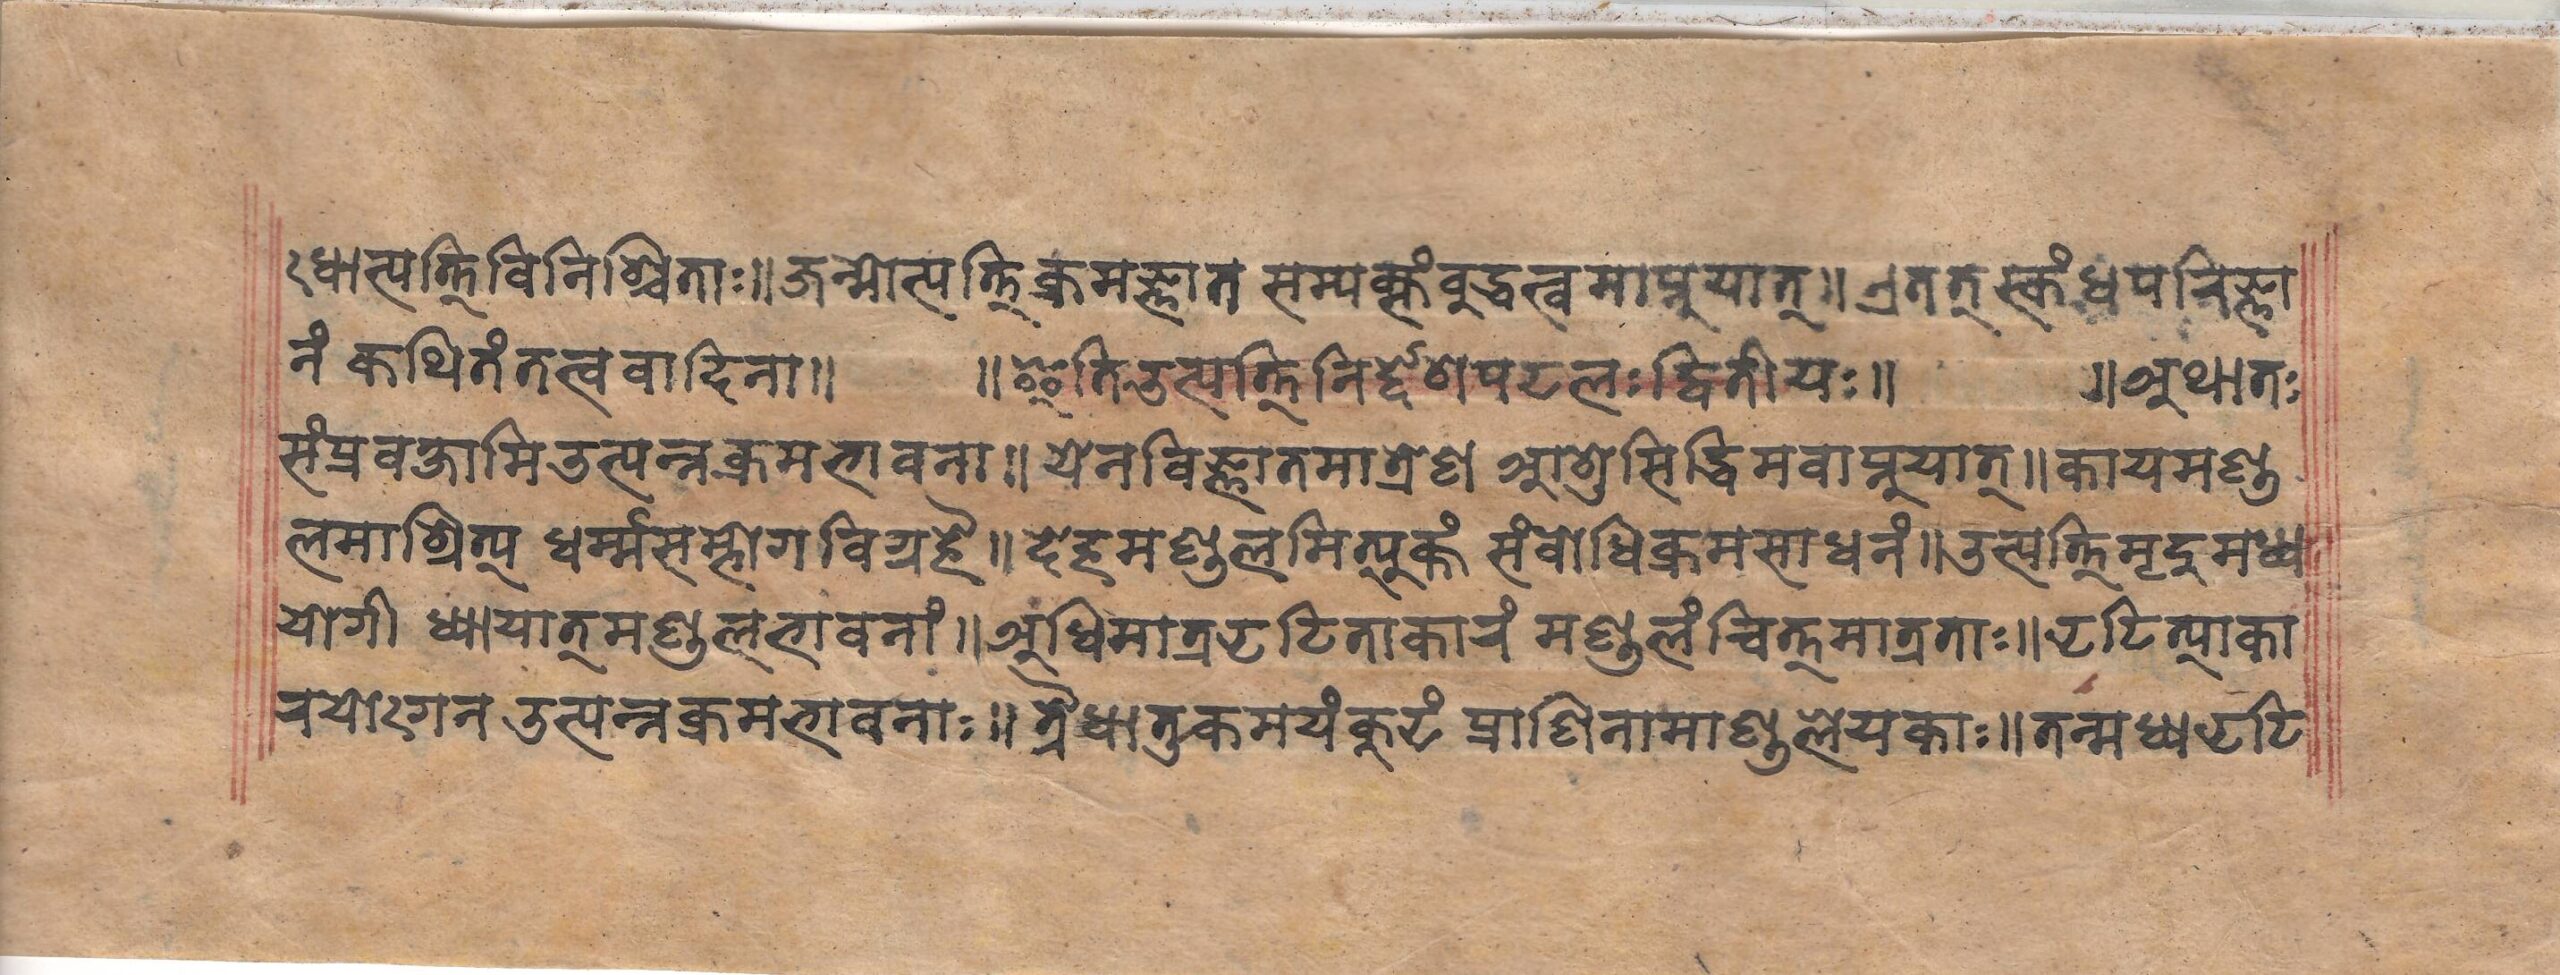 ःधात्पत्तिविनिश्चिताः॥जन्मोत्पत्तिक्रमज्ञात सम्यक्संबुद्धत्वमाप्नुयात्॥एतत् स्कंधपरिज्ञा
नं कथितं तत्ववादिना॥ ॥इति उत्पत्तिनिर्द्देशपटलः द्वितीयः॥ ॥अथातः
संप्रवक्षामि उत्पन्नक्रमभावना॥येन विज्ञातमात्रेण आशु सिद्धिमवाप्नुयात्॥कायमण्ड
लमाश्रित्य धर्म्मसम्भोगविग्रहै॥देहमण्डलमित्युक्तं संबोधिक्रमसाधनं॥उत्पत्तिमृदुमध्य
योगी ध्यायात् मण्डलभावनां॥अधिमात्रझटिताकारं मण्डलं चित्तमात्रताः॥झटित्याका
रयोःगन उत्पन्नक्रमभावनाः॥त्रैधातुकमयं कूटं प्राणिनामाण्डलेयकाः॥तन्मध्य झटि